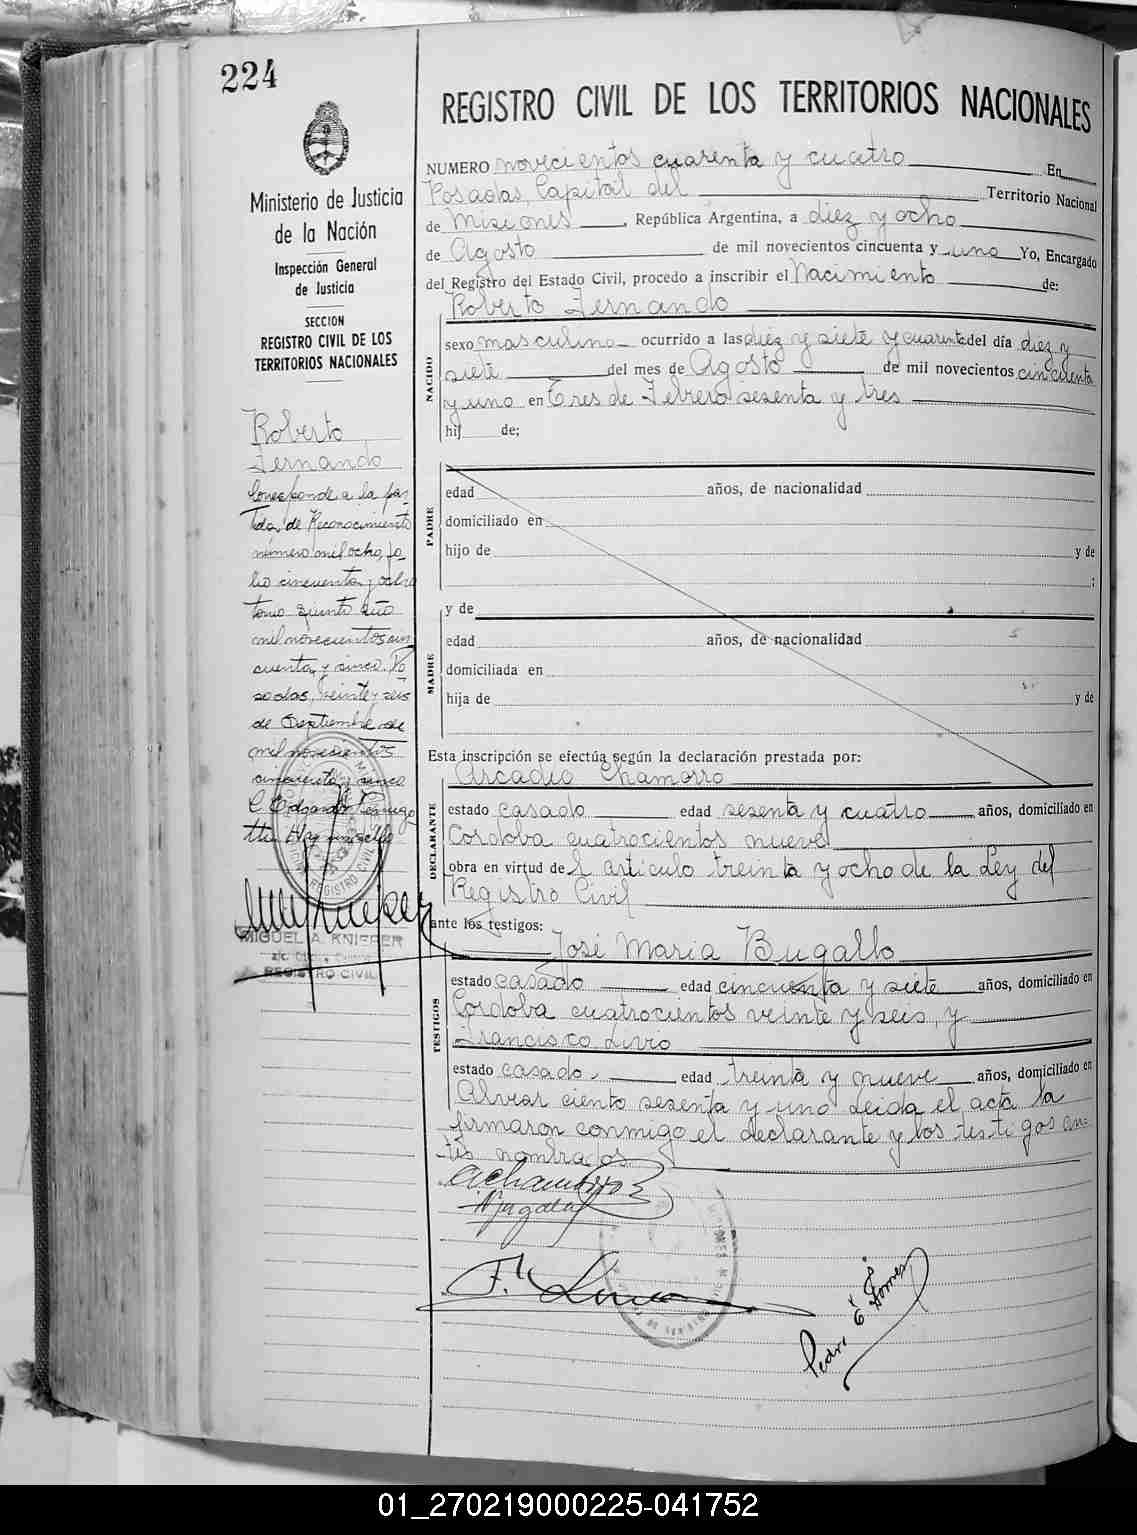 224
REGISTRO CIVIL DE LOS TERRITORIOS NACIONALES
Ministerio de Justicia
de la Nación
Inspección General
de Justicia
SECCION
REGISTRO CIVIL DE LOS
TERRITORIOS NACIONALES
Roberto
Fernando
Corresponde a la par-
tida de Reconocimiento
número mil ocho, fo-
lio cincuenta y ocho
tomo quinto año
mil novecientos cin
cuenta y cinco. Po
sadas, veinte y seis
de Septiembre de
mil novecientos
cincuenta y cinco
REGISTRO CIVIL
MIGUEL A. KNIEPER
REGISTRO CIVIL
NUMERO novecientos cuarenta y cuatro En
Posadas, Capital del Territorio Nacional
de Misiones, República Argentina, a diez y ocho
de Agosto de mil novecientos cincuenta y uno Yo, Encargado
del Registro del Estado Civil, procedo a inscribir el Nacimiento de:
Roberto Fernando
NACIDO
sexo masculino ocurrido a las diez y siete y cuarenta del día diez y
siete del mes de Agosto de mil novecientos cincuenta
y uno en Tres de Febrero sesenta y tres
hij de;
PADRE
edad años, de nacionalidad
domiciliado en
hijo de y de
;
y de
MADRE
edad años, de nacionalidad
domiciliada en
hija de y de
Esta inscripción se efectúa según la declaración prestada por:
Arcadio Chamorro
DECLARANTE
estado casado edad sesenta y cuatro años, domiciliado en
Cordoba cuatrocientos nueve
obra en virtud del articulo treinta y ocho de la Ley del
Registro Civil
ante los testigos:
José Maria Bugallo
TESTIGOS
estado casado edad cincuenta y siete años, domiciliado en
Cordoba cuatrocientos veinte y seis, y
Francisco Livro
estado casado edad treinta y nueve años, domiciliado en
Alvear ciento sesenta y uno Leida el acta la
firmaron conmigo el declarante y los testigos an-
tes nombrados.
AChamorro
F. Livro
Pedro E. Gomez
01_270219000225-041752